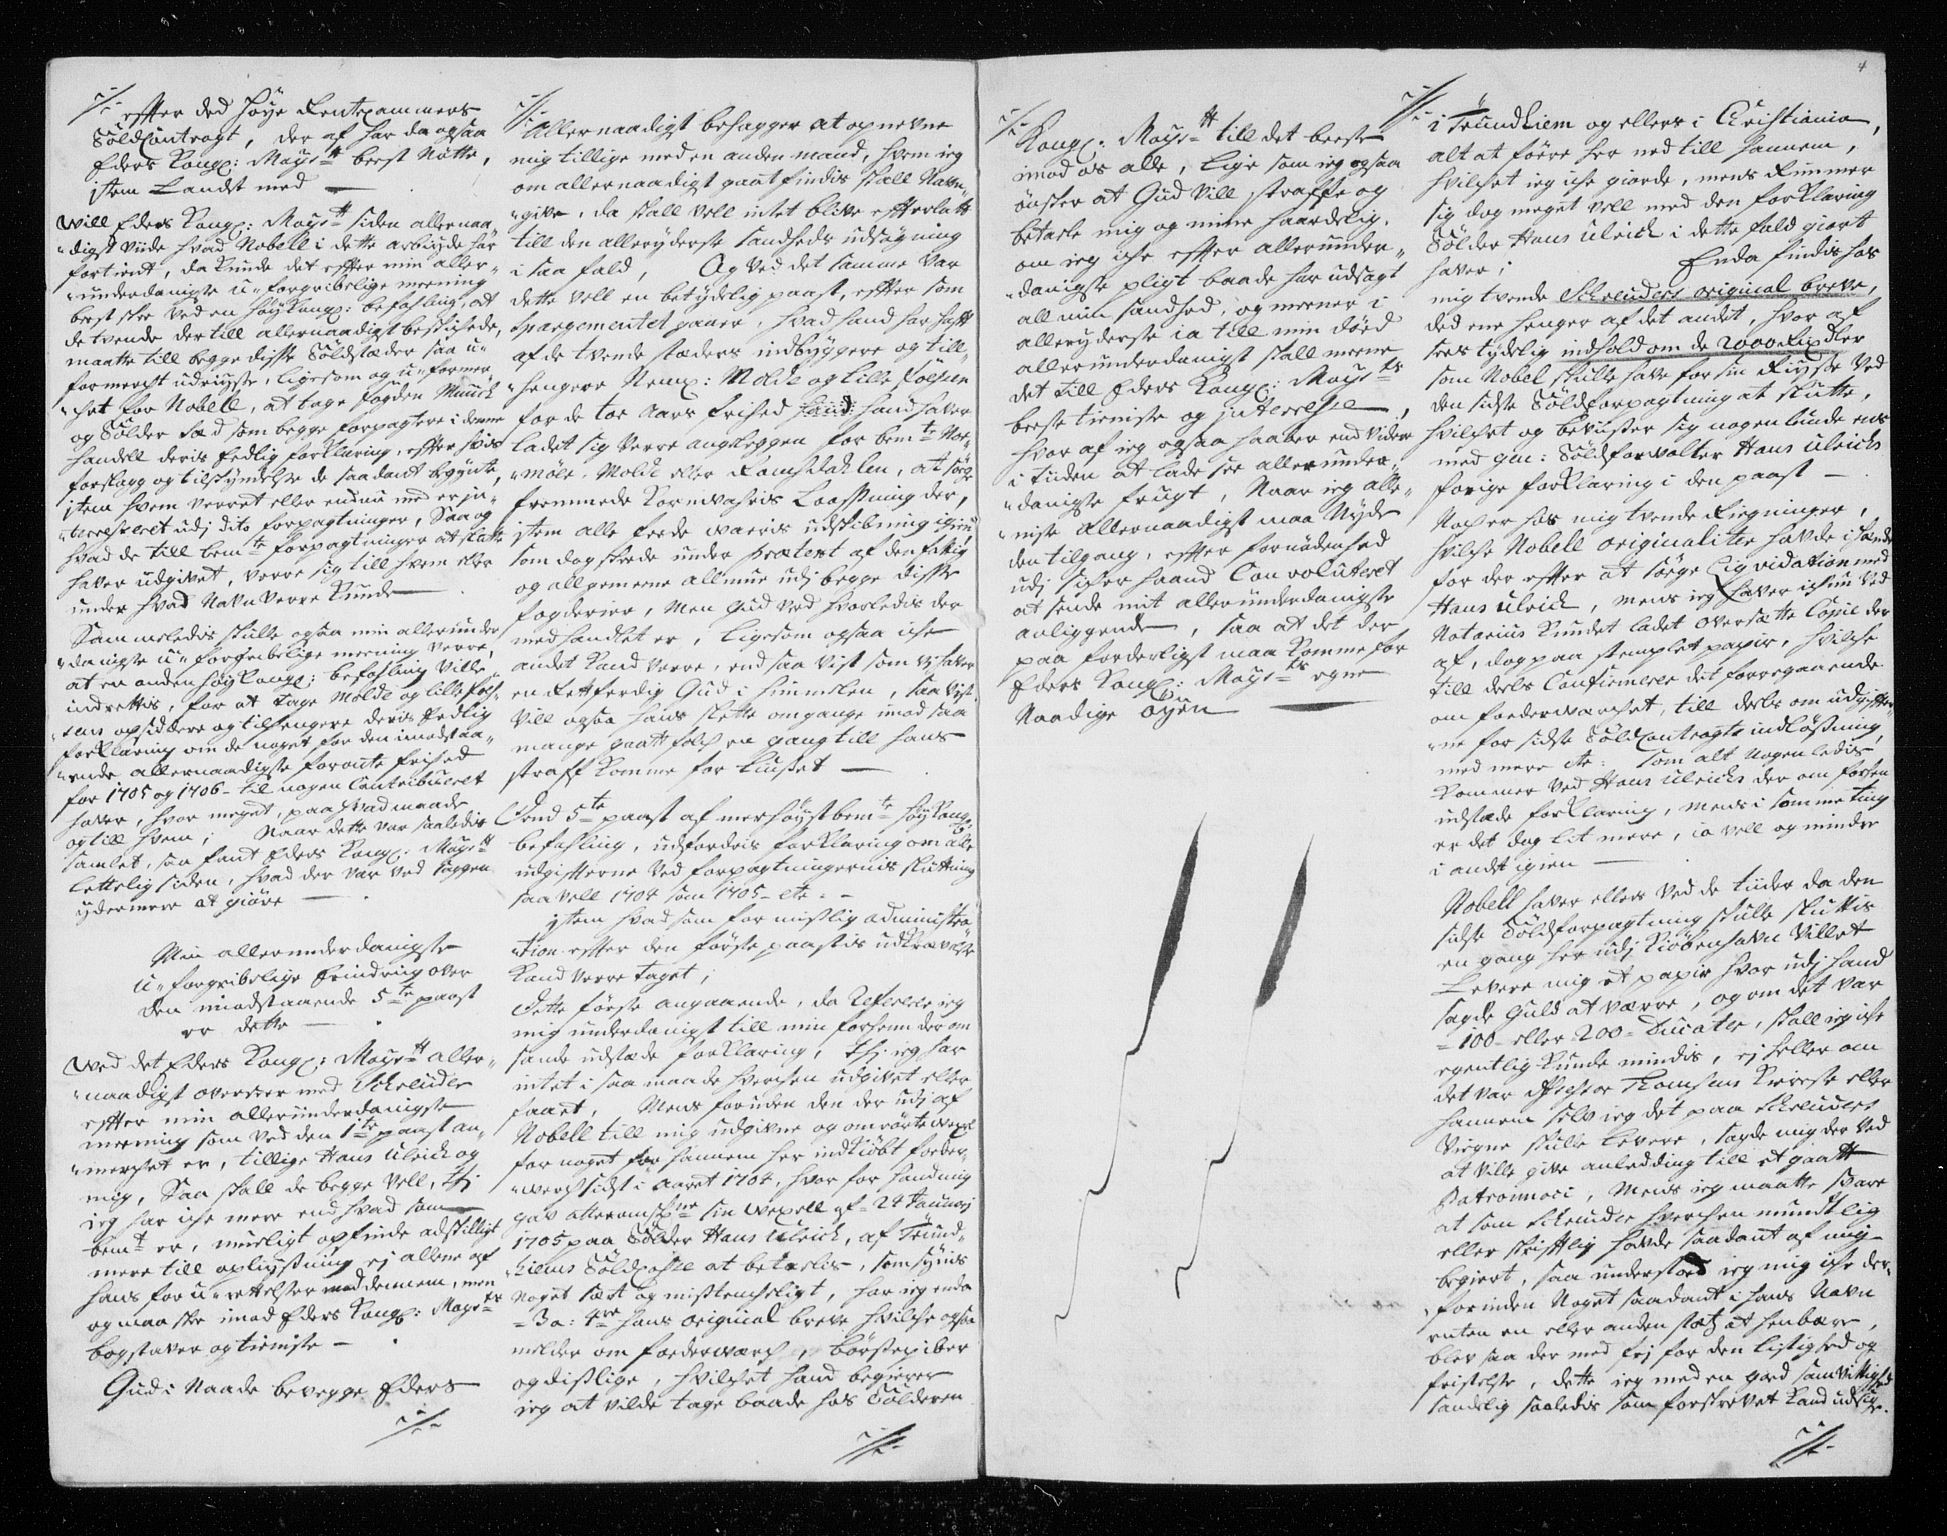 efter ded høye Rentecammers
Toldcontragt, der af har da ogsaa
Eders Kongl: Mayst beest Nötte,
item Landet med —
Will Eders Kongl: Maystt siden allernaa-
-digst viide hvad Nobell i dette arbiyde har
fortient, da kunde det efter min aller-
-underdanigste u-forgribelige meening
best skee ved en høy Kongl: befahling, at
de tvende dertill allernaadigst beskikede,
maatte till begge disse Toldstæder saa u-
formerckt udriigse, ligesom og u-former-
-ket for Nobell, at tage fogden Munck
og Tolder som begge forpagtere i denne
handell deris Eedlig forklaring, efter hvis
forslagg og tilskyndelse de saadant begynte,
item hvem verret eller endnu med er in-
-teresseret udj dito forpagtninger, Saa og
hvad de till bemte forpagtninger at slutte
haver udgivet, verre sig till hvem eller
under hvad Navn verre kunde —
Sammeledis skulle ogsaa min allerunder
-danigste u-forgribelige meening verre,
at en anden høy Kongl: befahling ville
indrettis, for at tage Molde og lille fos-
-sens opsiddere og tilhengere deris Eedlig
forklaring om de noget for den imodstaa-
-ende allernaadigste forunte frihed
for 1705 og 1706 til nogen Contribueret
haver, hvor meget, paa hvad maade
og till hvem; Naar dette var saaledis
samlet, saa fant Eders Kongl: Maystt
lettelig siden, hvad der var ved saggen
ydermere at giøre —
Min allerunderdanigste
u-forgribelige Erindring over
den imodstaaende 5te paast
er dette —
Wed det Eders Kongl: Maystt aller-
-naadigst overseer med Schreuder
efter min allerunderdanigste
meening som ved den 1te paast an-
-mercket er, tillige Hans Ulrich og
mig, Saa skall de begge vell, thi
jeg har icke mere end hvad som
bemt er, mueligt opfinde adskilligt
mere till oplysning ej allene af
hans for u-rettelser med dennem, men
og maaskee imod Eders Kongl: Maysts
bogstaver og tieniste —
Gud i Naade bevegge Eders
Allernaadigst behagger at opnevne
mig tillige med en anden mand, hvem jeg
om allernaadigst gaat findis skall Navn-
-give, da skall vell intet blive efterlatt
till den alleryderste sandheds udsøgning
i saa fald, Og ved det samme var
dette vell en betydelig paast, efter som
Spargementet gaaer, hvad hand har haft
af de tvende stæders indbyggere og till-
-hengere Neml: Molde og Lille fossen
for de toe Aars frihed hand haver
ladet sig verre angleggen for bemte Nor-
-møer, Molde eller Romsdahlen, at sørge
fremmede Kornwahris Loossning der,
item alle feede waaris udskibning igien,
som dog skeede under prætext af den fattig
og allgemeene allmue udj begge disse
fogderier, Men Gud ved hvorledis der
med handlet er, Ligesom ogsaa icke
andet kand verre, end saa vist som vi haver
en Retferdig Gud i himmelen, saa vist
vill ogsaa hans slette omgange imod saa
mange gaatt folck en gang till hans
straff komme for liuset —
Dend 5te paast af merhøystbemte høy Kongl:
befahling, udfordris forklaring om alle
udgifterne ved forpagtningernis slutning
saa vell 1704 som 1705 etc: —
item hvad som for mislig administra-
-tion efter den første paastis udkrævelse
kand verre taget;
Dette første angaaende, da Refererer jeg
mig underdanigst till min forhenn der om
sande udstæde forklaring, thi jeg har
intet i saa maade hvercken udgivet eller
faaet, Mens foruden den der udj af
Nobell till mig udgivne og omrørte wexel
for noget for hannem her indkiøbt foeder-
-werck sidst i Aaret 1704, hvor for hand mig
gav atter omskrne sin wexell af 24 Januarj
1705 paa Tolder Hans Ulrich, af Trund-
-hiems Toldcasse at betahlis, som synis
noget sært og mistenckeligt, har jeg enda
3a: 4re hans original breve hvilcke ogsaa
melder om foederwærck, børsepiber
og dislige, hvilcket hand begierer
jeg at vilde tage baade hos Tolderen
Kongl: Maystt till det beeste
imod os alle, lige som jeg ogsaa
ønsker at Gud vill straffe og
betahle mig og mine haardelig,
om jeg icke efter allerunder-
-danigste pligt baade har udsagt
all min sandhed, og meener i
alleryderste ia till min død
allerunderdanigst skall meene
det till Eders Kongl: Maysts
beeste tieniste og jnteresse,
hvor af jeg ogsaa haaber end videre
i tiiden at lade see allerunder-
-danigste frugt, Naar jeg alle-
-niste Allernaadigst maa Nyde
den tilgang, efter fornødenhed
udj sicker haand Convoluteret
at sende mit allerunderdanigste
anliggende, saa at det der
paa forderligst maa komme for
Eders Kongl: Maysts egne
Naadige Øyen —
4
i Trundhiem og ellers i Christiania,
alt at føre her ned till hannem,
hvilcket jeg icke giorde, mens Rimmer
sig dog meget vell med den forklaring
Tolder Hans Ulrich i dette fald giort
haver; Enda findis hos
mig tvende Schreuders original breve,
ded ene henger af det andet, hvor af
sees tydelig indhold om de 2000 Rixdler
som Nobel skulle have for sin Reyse ved
den sidste Toldforpagtning at slutte,
hvilcket og beviiser sig nogenlunde ens
med gen: Toldforvalter Hans Ulrichs
forige forklaring i den paast —
Noch er hos mig tvende Regninger,
hvilcke Nobell originaliter havde i hænde
for der efter at sørge Liqvidation med
Hans Ulrich, mens jeg haver ickun ved
Notarius Kundet ladet oversætte Copie der
af, dog paa stemplet papir, hvilcke
till deels Confirmerer dit foregaaende
om foederwarcket, till deels om udgifter-
-ne for sidste Toldcontragts indløssning,
med mere etc: som alt nogenledis
kommer ved Hans Ulrichs der om forhen
udstæde forklaring, mens i somme ting
er det dog lit mere, ia vell og minder
i andt igien —
Nobell haver ellers ved de tiider da den
sidste Toldforpagtning skulle sluttis
en gang her udj Kiøbenhavn villet
Levere mig et papir hvor udj hand
sagde Guld at værre, og om det var
100 eller 200 Ducater, skall jeg icke
egentlig kunde mindis, ej heller om
det var Thomsens Kiereste eller
hannem selv jeg det paa Schreuders
Vegne skulle Levere, sagde mig der ved
at ville give anledding till et gaatt
Patrimoni, Mens jeg maatte svare
at som Schreuder hvercken mundtlig
eller skriftlig havde saadant af mig
begiert, saa understoed jeg mig icke der-
-forinden Noget saadant i hans Navn
enten en eller anden stæts at henbære,
blev saa der med frj for den listighed og
fristelse, dette jeg med en goed samvittighed
sandelig saaledis som forskrevet kand udsige.